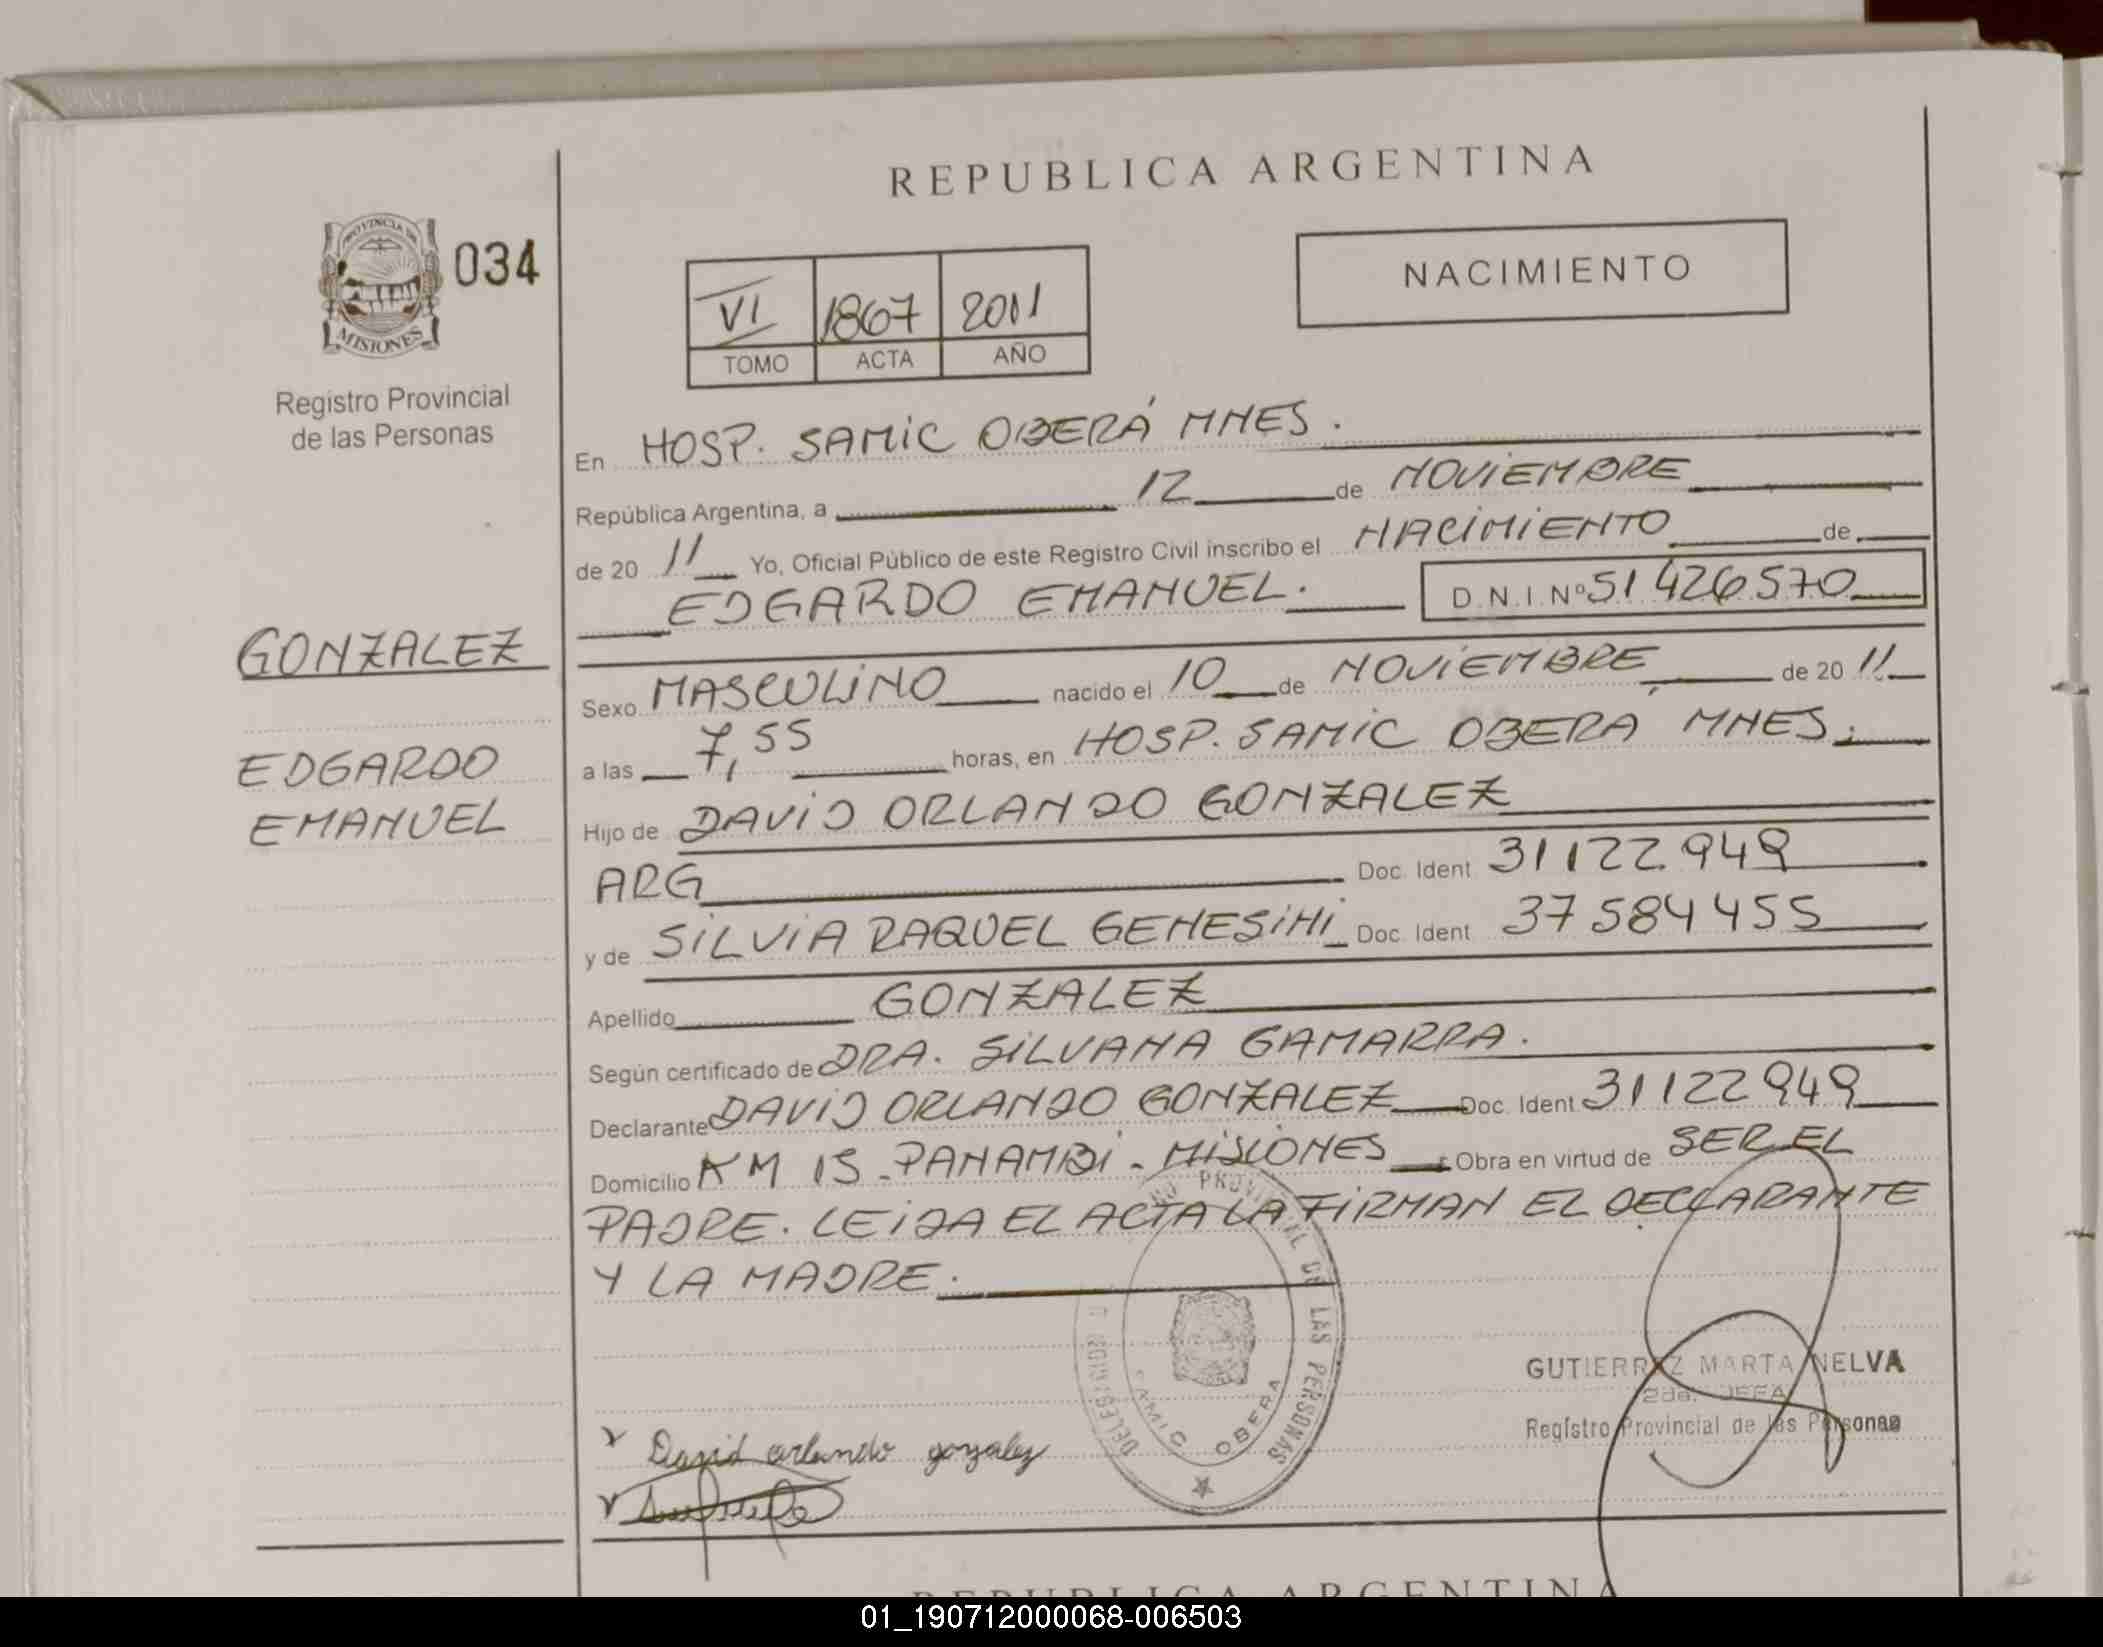 REPUBLICA ARGENTINA
PROVINCIA DE
MISIONES
034
Registro Provincial
de las Personas
VI 1867 2011
TOMO ACTA AÑO
NACIMIENTO
En HOSP. SAMIC OBERÁ MNES.
República Argentina, a 12 de NOVIEMBRE
de 20 11 Yo, Oficial Público de este Registro Civil inscribo el NACIMIENTO de
EDGARDO EMANUEL. D.N.I. Nº 51426570
GONZALEZ
EDGARDO
EMANUEL
Sexo MASCULINO nacido el 10 de NOVIEMBRE, de 20 11
a las 7,55 horas, en HOSP. SAMIC OBERA MNES.
Hijo de DAVID ORLANDO GONZALEZ
ARG Doc. Ident 31122.949
y de SILVIA RAQUEL GENESINI Doc. Ident 37584455
Apellido GONZALEZ
Según certificado de DRA. SILVANA GAMARRA.
Declarante DAVID ORLANDO GONZALEZ Doc. Ident 31122949
Domicilio KM 15 - PANAMBI - MISIONES Obra en virtud de SER EL
PADRE. LEIDA EL ACTA LA FIRMAN EL DECLARANTE
Y LA MADRE.
PROVINCIAL DE LAS PERSONAS
SAMIC OBERA
GUTIERREZ MARTA NELVA
2da. JEFA
Registro Provincial de las Personas
David orlando gonzalez
REPUBLICA ARGENTINA
01_190712000068-006503